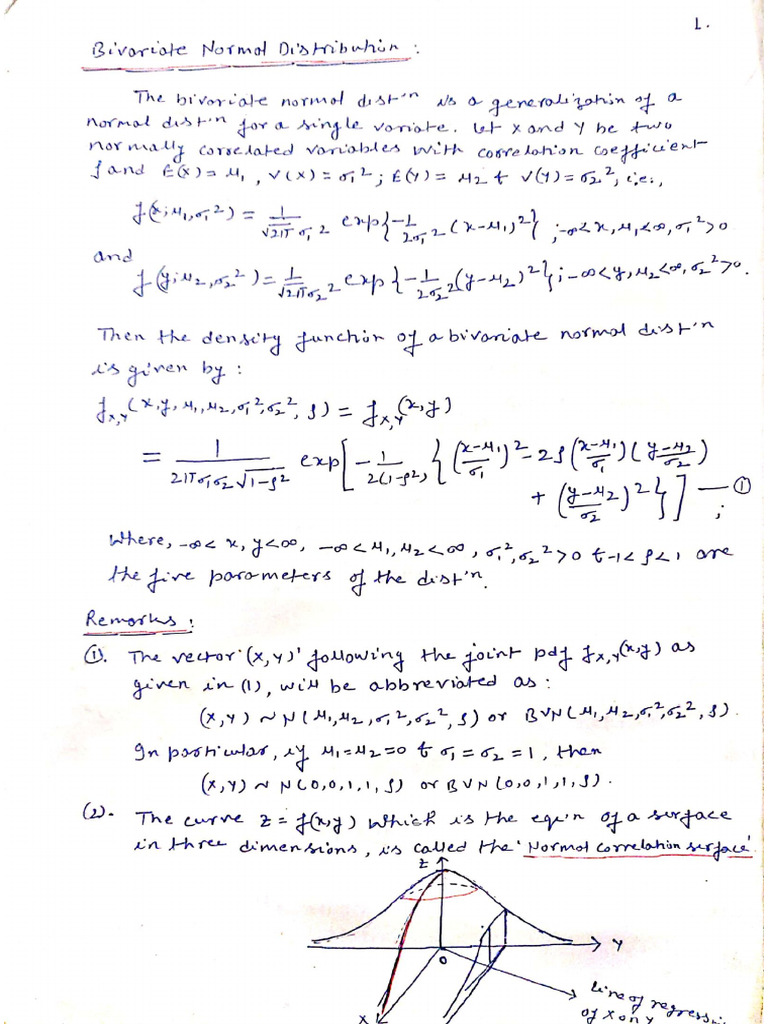 1.
Bivariate Normal Distribution :
The bivariate normal dist'n is a generalization of a
normal dist'n for a single variate. Let X and Y be two
normally correlated variables with correlation coefficient
ρ and E(X) = μ₁, V(X) = σ₁²; E(Y) = μ₂ & V(Y) = σ₂², i.e.,
f(x; μ₁, σ₁²) = 1/√2π σ₁² exp{-1/2σ₁² (x-μ₁)²} ; -∞<x, μ₁<∞, σ₁²>0
and
f(y; μ₂, σ₂²) = 1/√2π σ₂² exp{-1/2σ₂² (y-μ₂)²} ; -∞<y, μ₂<∞, σ₂²>0.
Then the density function of a bivariate normal dist'n
is given by :
f_{X,Y}(x, y, μ₁, μ₂, σ₁², σ₂², ρ) = f_{X,Y}(x,y)
= 1/2πσ₁σ₂√1-ρ² exp[-1/2(1-ρ²) {(x-μ₁/σ₁)² - 2ρ(x-μ₁/σ₁)(y-μ₂/σ₂)
+ (y-μ₂/σ₂)²}] — ① ;
Where, -∞< x, y<∞, -∞<μ₁, μ₂<∞, σ₁², σ₂²>0 & -1<ρ<1 are
the five parameters of the dist'n.
Remarks :
①. The vector '(X,Y)' following the joint pdf f_{X,Y}(x,y) as
given in (1), will be abbreviated as :
(X,Y) ~ N(μ₁, μ₂, σ₁², σ₂², ρ) or BVN(μ₁, μ₂, σ₁², σ₂², ρ).
In particular, if μ₁=μ₂=0 & σ₁=σ₂=1, then
(X,Y) ~ N(0,0,1,1,ρ) or BVN(0,0,1,1,ρ).
(2). The curve z = f(x,y) which is the equ'n of a surface
in three dimensions, is called the 'Normal correlation surface'.
Z
Y
O
X
line of regressi
of X on Y